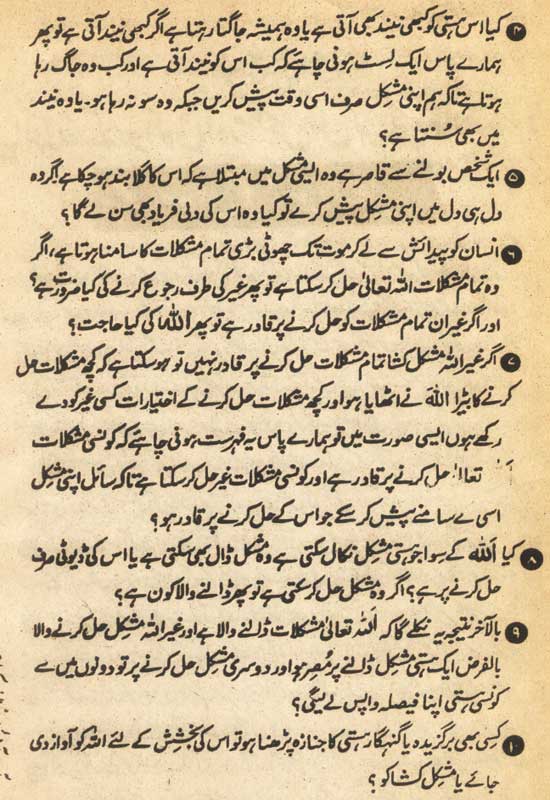 ۴ کیا اس ہستی کو کبھی نیند بھی آتی ہے یا وہ ہمیشہ جاگتا رہتا ہے اگر کبھی نیند آتی ہے تو پھر
ہمارے پاس ایک لسٹ ہونی چاہئے کہ کب اس کو نیند آتی ہے اور کب وہ جاگ رہا
ہوتا ہے تاکہ ہم اپنی مشکل صرف اسی وقت پیش کریں جبکہ وہ سو نہ رہا ہو۔ یا وہ نیند
میں بھی سُنتا ہے؟
۵ ایک شخص بولنے سے قاصر ہے وہ ایسی مشکل میں مبتلا ہے کہ اس کا گلا بند ہو چکا ہے اگر وہ
دل ہی دل میں اپنی مشکل پیش کرے تو کیا وہ اس کی دلی فریاد بھی سن لے گا؟
۶ انسان کو پیدائش سے لے کر موت تک چھوٹی بڑی تمام مشکلات کا سامنا ہوتا ہے، اگر
وہ تمام مشکلات اللہ تعالیٰ حل کر سکتا ہے تو پھر غیر کی طرف رجوع کرنے کی کیا ضرورت ہے؟
اور اگر غیر ان تمام مشکلات کو حل کرنے پر قادر ہے تو پھر اللہ کی کیا حاجت؟
۷ اگر غیر اللہ مشکل کشا تمام مشکلات حل کرنے پر قادر نہیں تو ہو سکتا ہے کہ کچھ مشکلات حل
کرنے کا بیڑا اللہ نے اٹھایا ہو اور کچھ مشکلات حل کرنے کے اختیارات کسی غیر کو دے
رکھے ہوں ایسی صورت میں تو ہمارے پاس یہ فہرست ہونی چاہئے کہ کونسی مشکلات
تعالیٰ حل کرنے پر قادر ہے اور کونسی مشکلات غیر حل کر سکتا ہے تاکہ سائل اپنی مشکل
اسی کے سامنے پیش کر سکے جو اس کے حل کرنے پر قادر ہو؟
۸ کیا اللہ کے سوا جو ہستی مشکل نکال سکتی ہے وہ مشکل ڈال بھی سکتی ہے یا اس کی ڈیوٹی صرف
حل کرنے پر ہے؟ اگر وہ مشکل حل کر سکتی ہے تو پھر ڈالنے والا کون ہے؟
۹ بالآخر نتیجہ یہ نکلے گا کہ اللہ تعالیٰ مشکلات ڈالنے والا ہے اور غیر اللہ مشکل حل کرنے والا
بالفرض ایک ہستی مشکل ڈالنے پر مُصِر ہو اور دوسری مشکل حل کرنے پر تو دونوں میں سے
کونسی ہستی اپنا فیصلہ واپس لے لیگی؟
۱۰ کسی بھی برگزیدہ یا گنہگار ہستی کا جنازہ پڑھنا ہو تو اس کی بخشش کے لئے اللہ کو آواز دی
جائے یا مشکل کشا کو؟